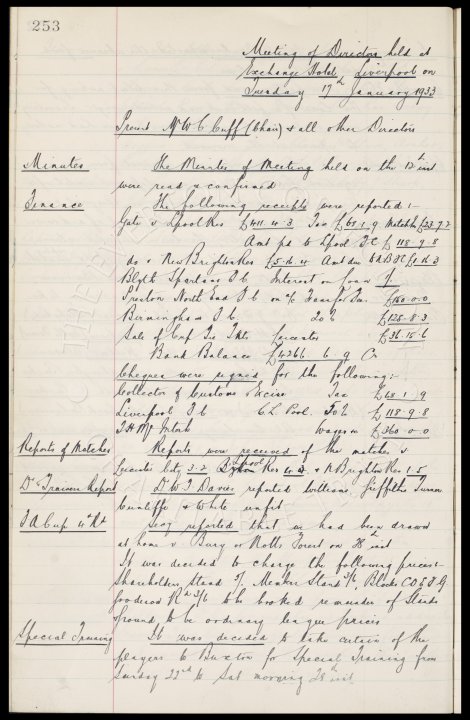 253
Meeting of Directors held at
Exchange Hotel, Liverpool on
Tuesday 17th January 1933
Present Mr W C Cuff (Chair) & all other Directors
Minutes
The Minutes of Meeting held on the 12th inst
were read & confirmed
Finance
The following receipts were reported:-
Gate v L'pool Res £411. 4. 3 Tax £68. 1. 9 Match Ex £23. 7. 2
Amt pd to L'pool F.C. £118. 9. 8
do v New Brighton Res £5. 16. 4 Amt due N B FC £1. 16. 3
Blyth Spartans F C Interest on Loan £1
Preston North End F C on a/c Transfer Fee £150. 0. 0
Birmingham F C Do £125. 8. 3
Sale of Cup Tie Tkts Leicester £36. 15. 6
Bank Balance £4366. 6. 9 Cr
Cheques were signed for the following:-
Collector of Customs & Excise Tax £68. 1. 9
Liverpool F C C L Pool £118. 9. 8
T H McIntosh Wages &c £360. 0. 0
Reports of Matches
Reports were received of the matches v
Leicester City 3-2 L'pool Res & N Brighton Res 1-5
Dr & Trainers Report
Dr W T Davies reported Williams, Griffiths Turner
Cunliffe & White unfit
F A Cup 4th Rd
Secy reported that we had been drawn
at home v Bury or Notts Forest on 28th inst
It was decided to charge the following prices:-
Shareholders Stand 5/- Member Stand 3/6, Blocks C D E F G
Goodison Rd 3/6 to be booked remainder of Stands
Ground to be ordinary league prices
Special Training
It was decided to take certain of the
players to Buxton for Special Training from
Sunday 22nd to Sat morning 28th inst